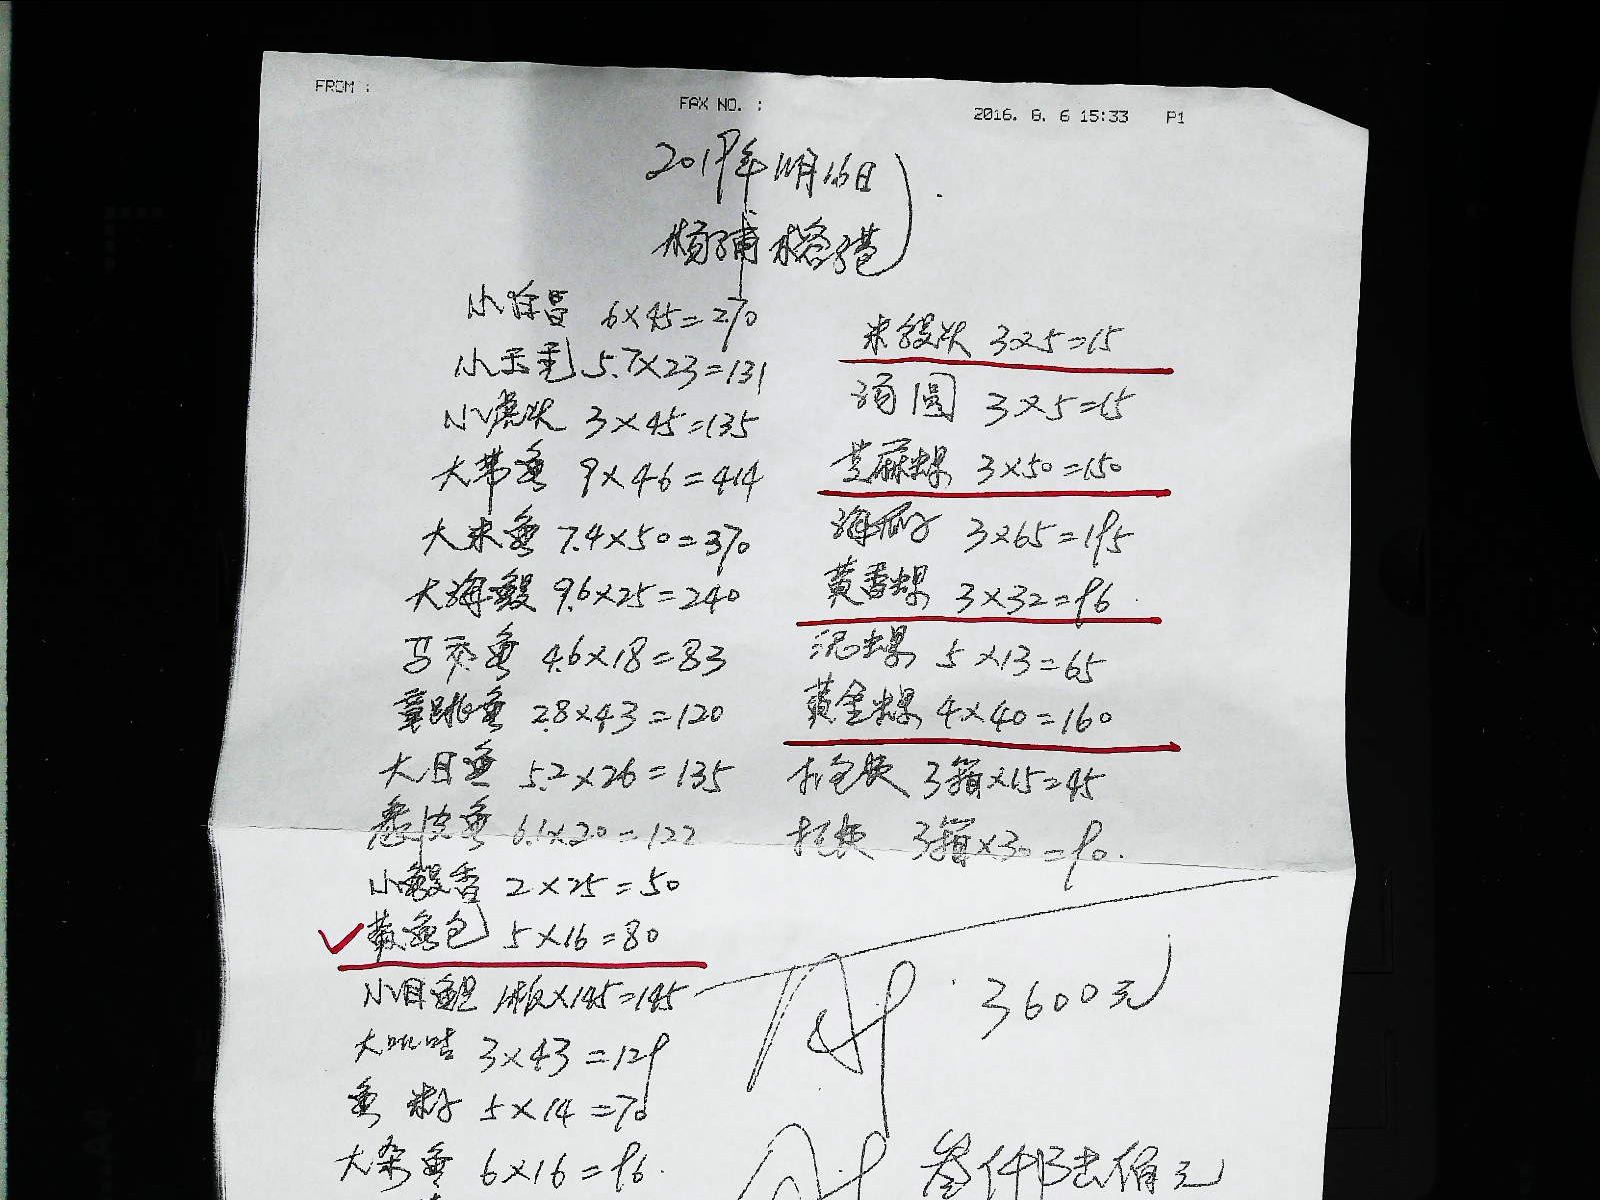 FROM :
FAX NO. :
2016. 8. 6 15:33 P1
2019年11月16日
杨浦格
小 6×45=270
小玉秃 5.7×23=131
小虎 3×45=135
大带鱼 9×46=414
大米鱼 7.4×50=370
大海鳗 9.6×25=240
马夹鱼 4.6×18=83
跳鱼 2.8×43=120
大目鱼 5.2×26=135
皮鱼 6.1×20=122
小鳗 2×25=50
黄鱼包 5×16=80
小目鱼 1板×145=145
大咕 3×43=129
鱼 籽 5×14=70
大杂鱼 6×16=96.
米 3×5=15
汤圆 3×5=15
芝麻螺 3×50=150
海瓜子 3×65=195
黄香螺 3×32=96.
泥螺 5×13=65
黄金螺 4×40=160
3箱×15=45
3箱×30=90.
付 3600元
付 叁仟陆佰元